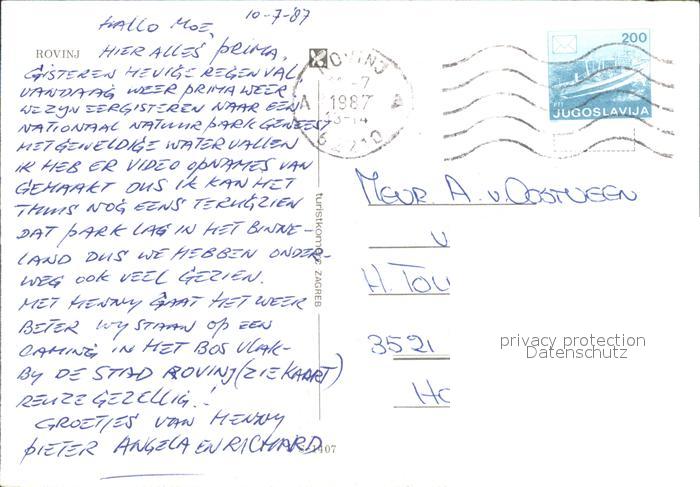 10-7-87
HALLO MOE,
ROVINJ
HIER ALLES PRIMA,
GISTEREN HEVIGE REGENVAL
VANDAAG WEER PRIMA WEER
WE ZYN EERGISTEREN NAAR EEN
NATIONAAL NATUUR PARK GEWEEST
MET GEWELDIGE WATERVALLEN
IK HEB ER VIDEO OPNAMES VAN
GEMAAKT DUS IK KAN HET
THUIS NOG EENS TERUGZIEN
DAT PARK LAG IN HET BINNE-
LAND DUS WE HEBBEN ONDER-
WEG OOK VEEL GEZIEN.
MET HENNY GAAT HET WEER
BETER WY STAAN OP EEN
CAMING IN HET BOS VLAK-
BY DE STAD ROVINJ (ZIE KAART)
REUZE GEZELLIG!
GROETJES VAN HENNY
PIETER ANGELA EN RICHARD
turistkomerc ZAGREB
1407
ROVINJ
-7
1987
-14
52210
200
PTT
JUGOSLAVIJA
MEVR A. v. OOSTVEEN
v
H. TOU
3521
HO
privacy protection
Datenschutz